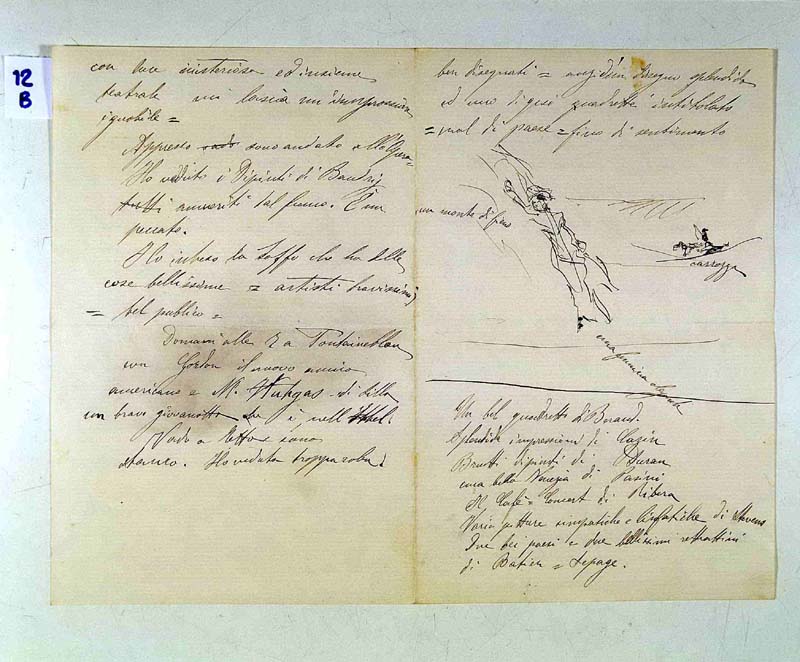 12
B
con luce misteriosa ed insieme
teatrale mi lascia un'impressione
ignobile =
Appresso vado sono andato all'Opera =
Ho veduto i Dipinti di Baudry
tutti anneriti dal fumo. È un
peccato.
Ho inteso la Saffo che ha delle
cose bellissime = artisti bravissimi
= bel publico =
Domani alle 7 a Fontainebleau
con Gordon il nuovo amico
americano e M.
un bravo giovanotto che è nell'
Vado a letto sono
stanco. Ho veduto troppa roba.
ben disegnati = disegno splendido
ed uno di quei quadretti intitolato
= mal di paese = fino di sentimento
un monte di fieno
carrozza
una
Un bel quadretto di Beraud.
Splendide impressioni di Cazin
Brutti dipinti di Duran
una bella Venezia di Pasini
Il Cafè = Concert di Ribera
Varie pitture simpatiche e di Stevens
Due bei paesi e due bellissimi rittrattini
di Bastien = Lepage.